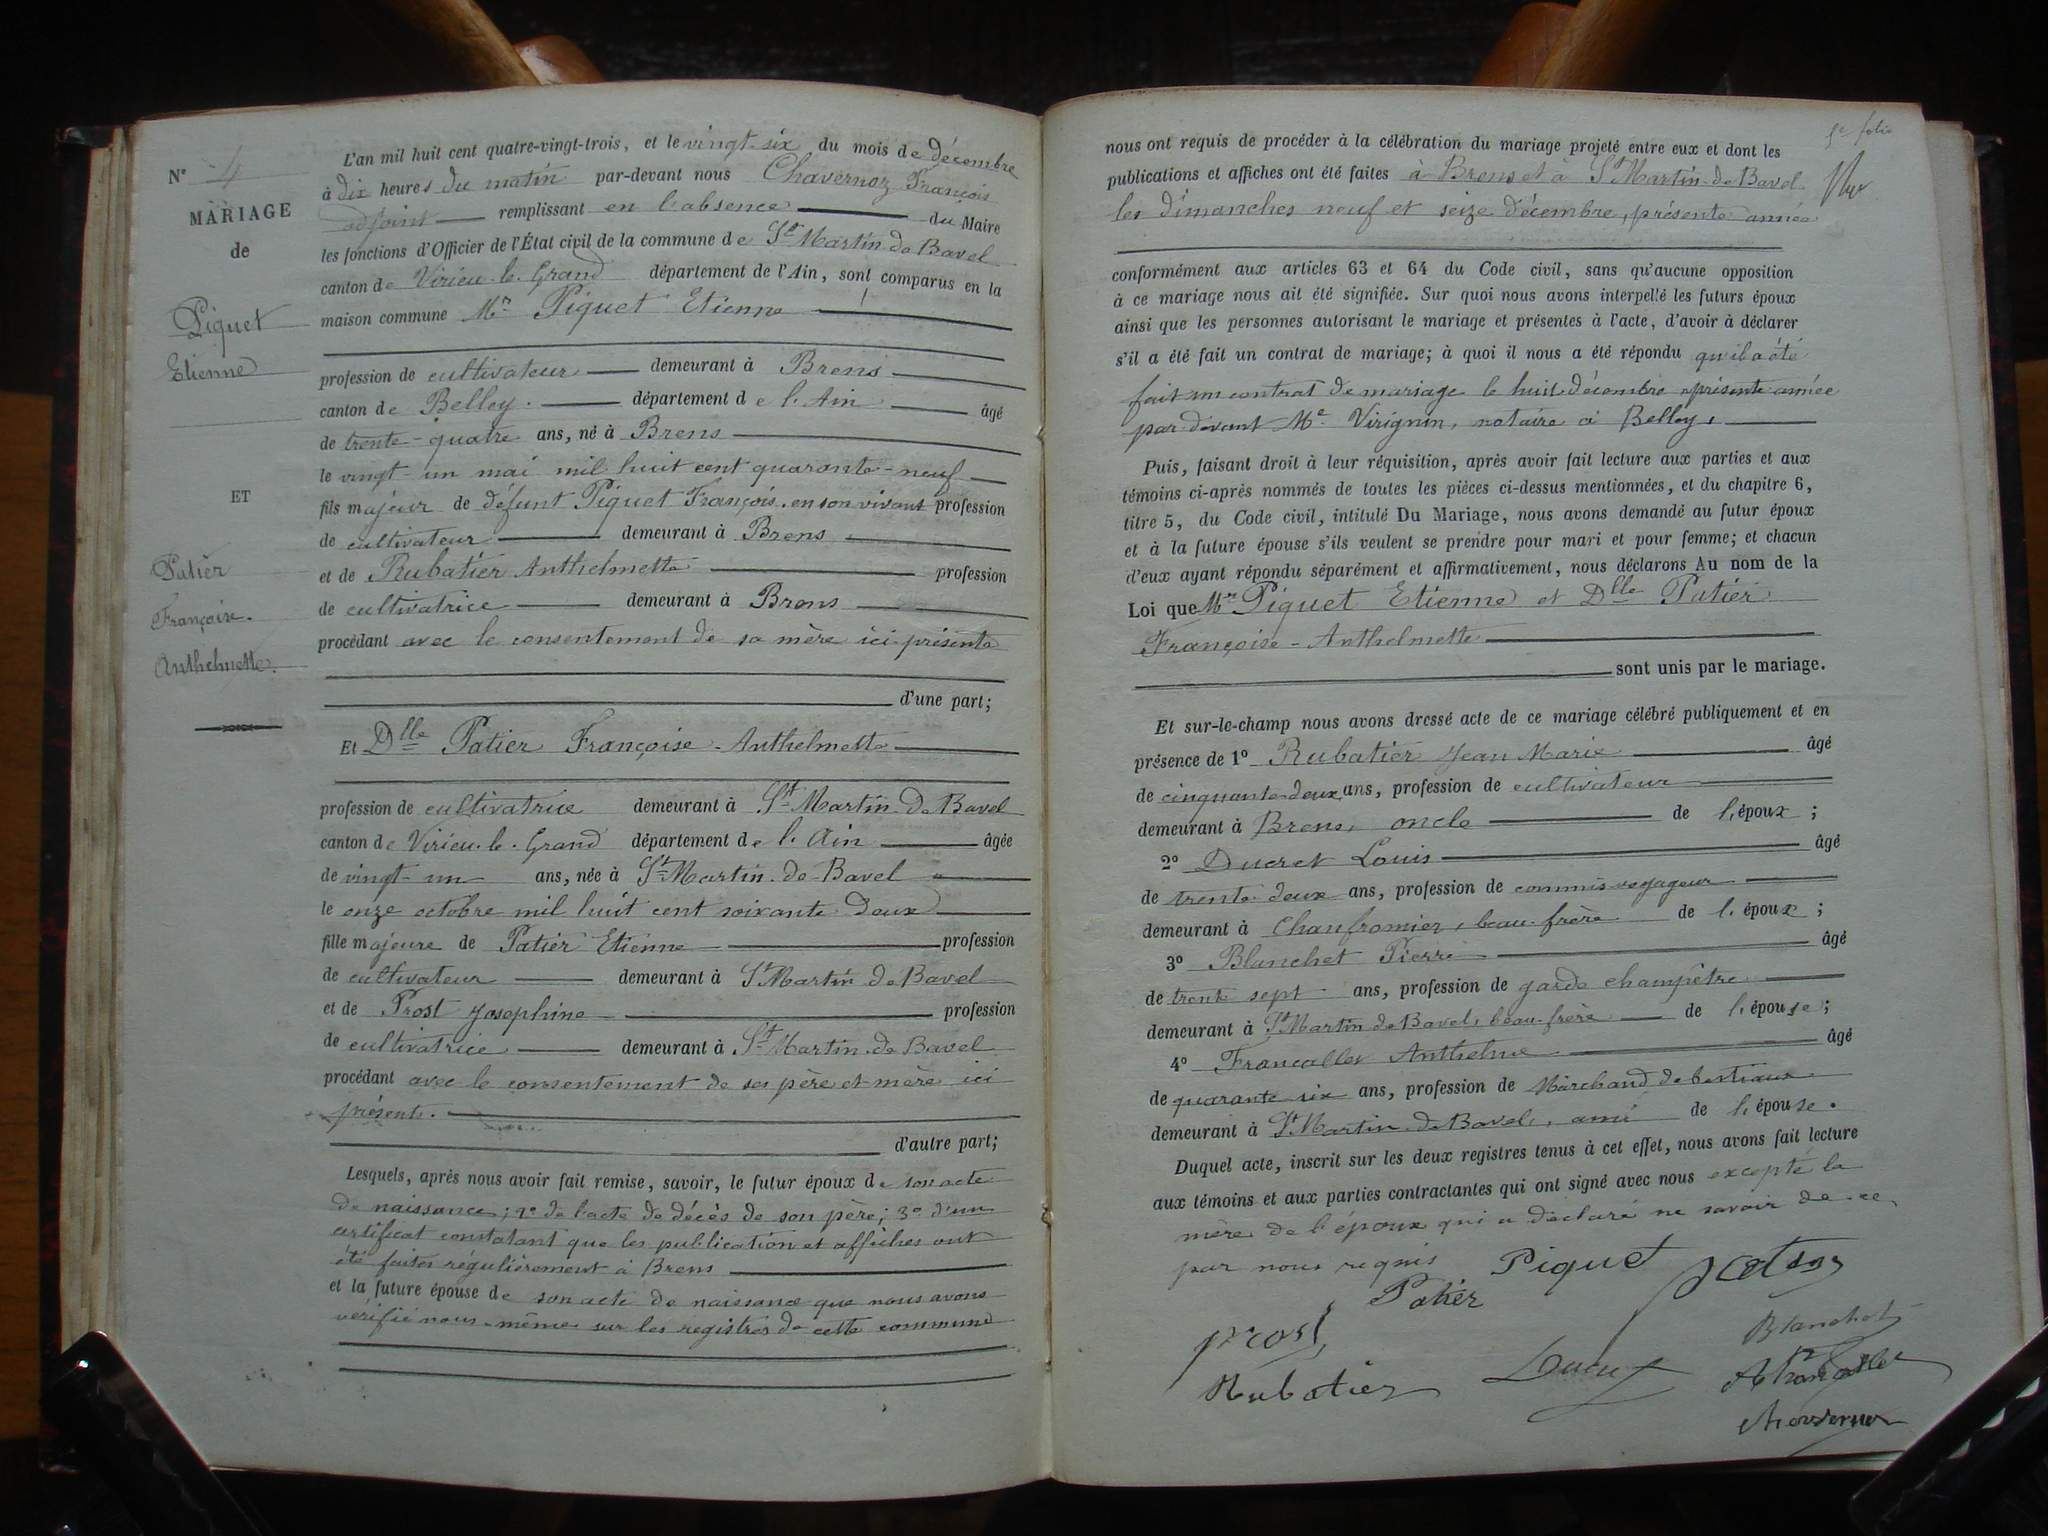 N° 4
MARIAGE
de
Piquet
Etienne
ET
Patier
Françoise.
Anthelmette.
L'an mil huit cent quatre-vingt-trois, et le vingt-six du mois de décembre
à dix heures du matin par-devant nous Chavernoz François
adjoint remplissant en l'absence du Maire
les fonctions d'Officier de l'État civil de la commune de St Martin de Bavel
canton de Virieu-le-Grand département de l'Ain, sont comparus en la
maison commune Mr Piquet Etienne
profession de cultivateur demeurant à Brens
canton de Belley département de l'Ain âgé
de trente-quatre ans, né à Brens
le vingt-un mai mil huit cent quarante-neuf
fils majeur de défunt Piquet François, en son vivant profession
de cultivateur demeurant à Brens
et de Rubatier Anthelmette profession
de cultivatrice demeurant à Brens
procédant avec le consentement de sa mère ici présente
d'une part;
Et Dlle Patier Françoise-Anthelmette
profession de cultivatrice demeurant à St Martin de Bavel
canton de Virieu-le-Grand département de l'Ain âgée
de vingt-un ans, née à St Martin-de-Bavel
le onze octobre mil huit cent soixante-deux
fille majeure de Patier Etienne profession
de cultivateur demeurant à St Martin de Bavel
et de Prost Joséphine profession
de cultivatrice demeurant à St Martin-de-Bavel
procédant avec le consentement de ses père et mère ici
présents.
d'autre part;
Lesquels, après nous avoir fait remise, savoir, le futur époux de son acte
de naissance; 2° de l'acte de décès de son père; 3° d'un
certificat constatant que les publication et affiches ont
été faites régulièrement à Brens
et la future épouse de son acte de naissance que nous avons
vérifié nous-même sur les registres de cette commune
5e folio
nous ont requis de procéder à la célébration du mariage projeté entre eux et dont les
publications et affiches ont été faites à Brens et à St Martin-de-Bavel
les dimanches neuf et seize décembre, présente année
conformément aux articles 63 et 64 du Code civil, sans qu'aucune opposition
à ce mariage nous ait été signifiée. Sur quoi nous avons interpellé les futurs époux
ainsi que les personnes autorisant le mariage et présentes à l'acte, d'avoir à déclarer
s'il a été fait un contrat de mariage; à quoi il nous a été répondu qu'il a été
fait un contrat de mariage le huit décembre présente année
par devant Me Virignin, notaire à Belley,
Puis, faisant droit à leur réquisition, après avoir fait lecture aux parties et aux
témoins ci-après nommés de toutes les pièces ci-dessus mentionnées, et du chapitre 6,
titre 5, du Code civil, intitulé Du Mariage, nous avons demandé au futur époux
et à la future épouse s'ils veulent se prendre pour mari et pour femme; et chacun
d'eux ayant répondu séparément et affirmativement, nous déclarons Au nom de la
Loi que Mr Piquet Etienne et Dlle Patier
Françoise-Anthelmette
sont unis par le mariage.
Et sur-le-champ nous avons dressé acte de ce mariage célébré publiquement et en
présence de 1° Rubatier Jean Marie âgé
de cinquante-deux ans, profession de cultivateur
demeurant à Brens, oncle de l'époux;
2° Ducret Louis âgé
de trente-deux ans, profession de commis-voyageur
demeurant à Chanfromier, beau-frère de l'époux;
3° Blanchet Pierre âgé
de trente-sept ans, profession de garde champêtre
demeurant à St Martin de Bavel, beau-frère de l'épouse;
4° Francallet Anthelme âgé
de quarante-six ans, profession de Marchand de bestiaux
demeurant à St Martin-de-Bavel, ami de l'épouse.
Duquel acte, inscrit sur les deux registres tenus à cet effet, nous avons fait lecture
aux témoins et aux parties contractantes qui ont signé avec nous excepté la
mère de l'époux qui a déclaré ne savoir de ce
par nous requis
Piquet
Patier
Prost
Blanchet
Rubatier
Ducret